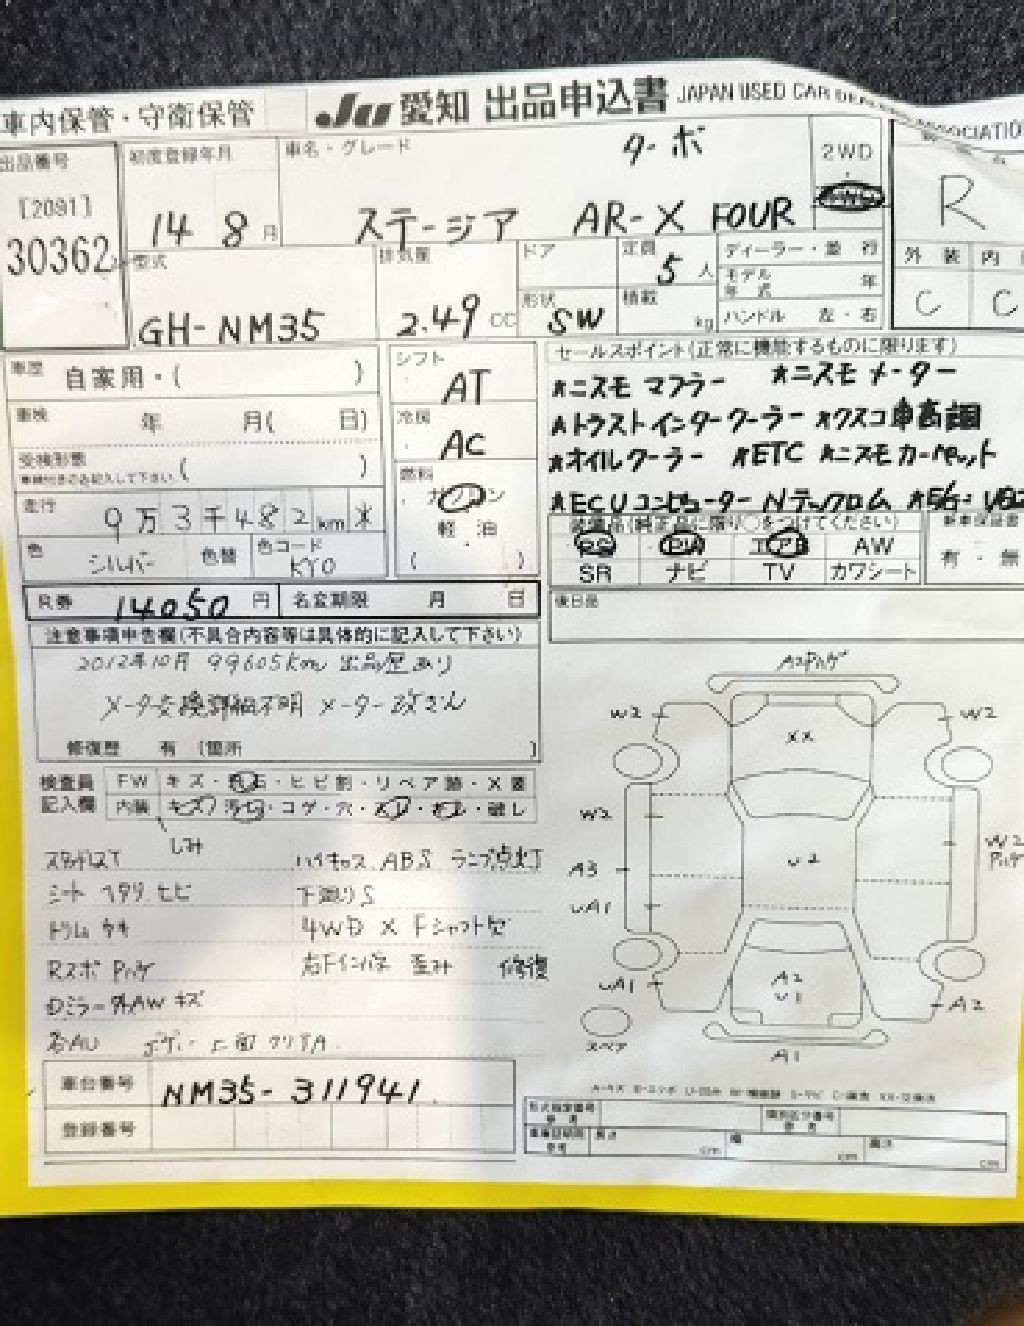 車内保管・守衛保管 Ju 愛知 出品申込書 JAPAN USED CAR DEALERS ASSOCIATION
出品番号 初度登録年月 車名・グレード ターボ 2WD
[2091] 14 8月 ステージア AR-X FOUR R
30362
型式 排気量 ドア 定員 5人 ディーラー・並行 外装 内
モデル年式 年
GH-NM35 2.49 CC 形状 SW 積載 kg ハンドル 左・右 C C
車歴 自家用・( ) シフト AT セールスポイント(正常に機能するものに限ります)
★ニスモ マフラー ★ニスモ メーター
車検 年 月( 日) 冷房 AC ★トラストインタークーラー ★クスコ車高調
受検形態 ( ) 燃料 ★オイルクーラー ★ETC ★ニスモカーペット
車検付きのみ記入して下さい。
走行 9万3千482km ※ ガソリン ★ECUコンピューター Nテックロム
軽・油 装備品(純正品に限り○をつけてください) 新車保証書
色 シルバー 色替 色コード KY0 ( ) PS PW エアB AW 有・無
SR ナビ TV カワシート
R券 14050円 名変期限 月 日 後日品
注意事項申告欄(不具合内容等は具体的に記入して下さい)
2012年10月 99605km 出品歴あり
メータ交換詳細不明 メーター改ざん
修復歴 有 (箇所 )
検査員 FW キズ・飛石・ヒビ割・リペア跡・X要
記入欄 内装 キズ・汚れ・コゲ・穴・・破レ
シミ
スタッドレスT ハイキョス ABSランプ点灯
シート ヘタリ ヒビ 下廻りS
トリム ウキ 4WD X Fシャフト欠
Rスポ Pハゲ 右Fインパネ 歪み 修復
Dミラー外AW キズ
各AU ボディ上面クリアA
車台番号 NM35-311941
登録番号
A2Pハゲ
W2 W2
XX
W2 W2 Pハゲ
A3 U2
UA1
UA1 A2 U1 A2
スペア A1
形式指定番号 参考 類別区分番号 参考
車庫証明用 参考 長さ cm 幅 cm 高さ cm